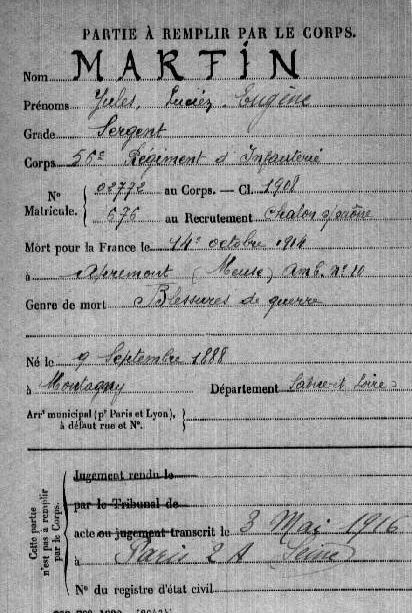 PARTIE À REMPLIR PAR LE CORPS.
Nom MARTIN
Prénoms Jules, Eugène
Grade Sergent
Corps 56e Régiment d'Infanterie
No 02772 au Corps. — Cl. 1908
Matricule. 676 au Recrutement Chalon s/Saône
Mort pour la France le 14 octobre 1914
à Apremont (Meuse) Amb. no 10
Genre de mort Blessures de guerre
Né le 9 Septembre 1888
à Montagny Département Saône-et-Loire
Arrt municipal (pr Paris et Lyon),
à défaut rue et No.
Cette partie
n'est pas à remplir
par le Corps.
Jugement rendu le
par le Tribunal de
acte ou jugement transcrit le 3 Mai 1916
à Paris 2 A Seine
No du registre d'état civil